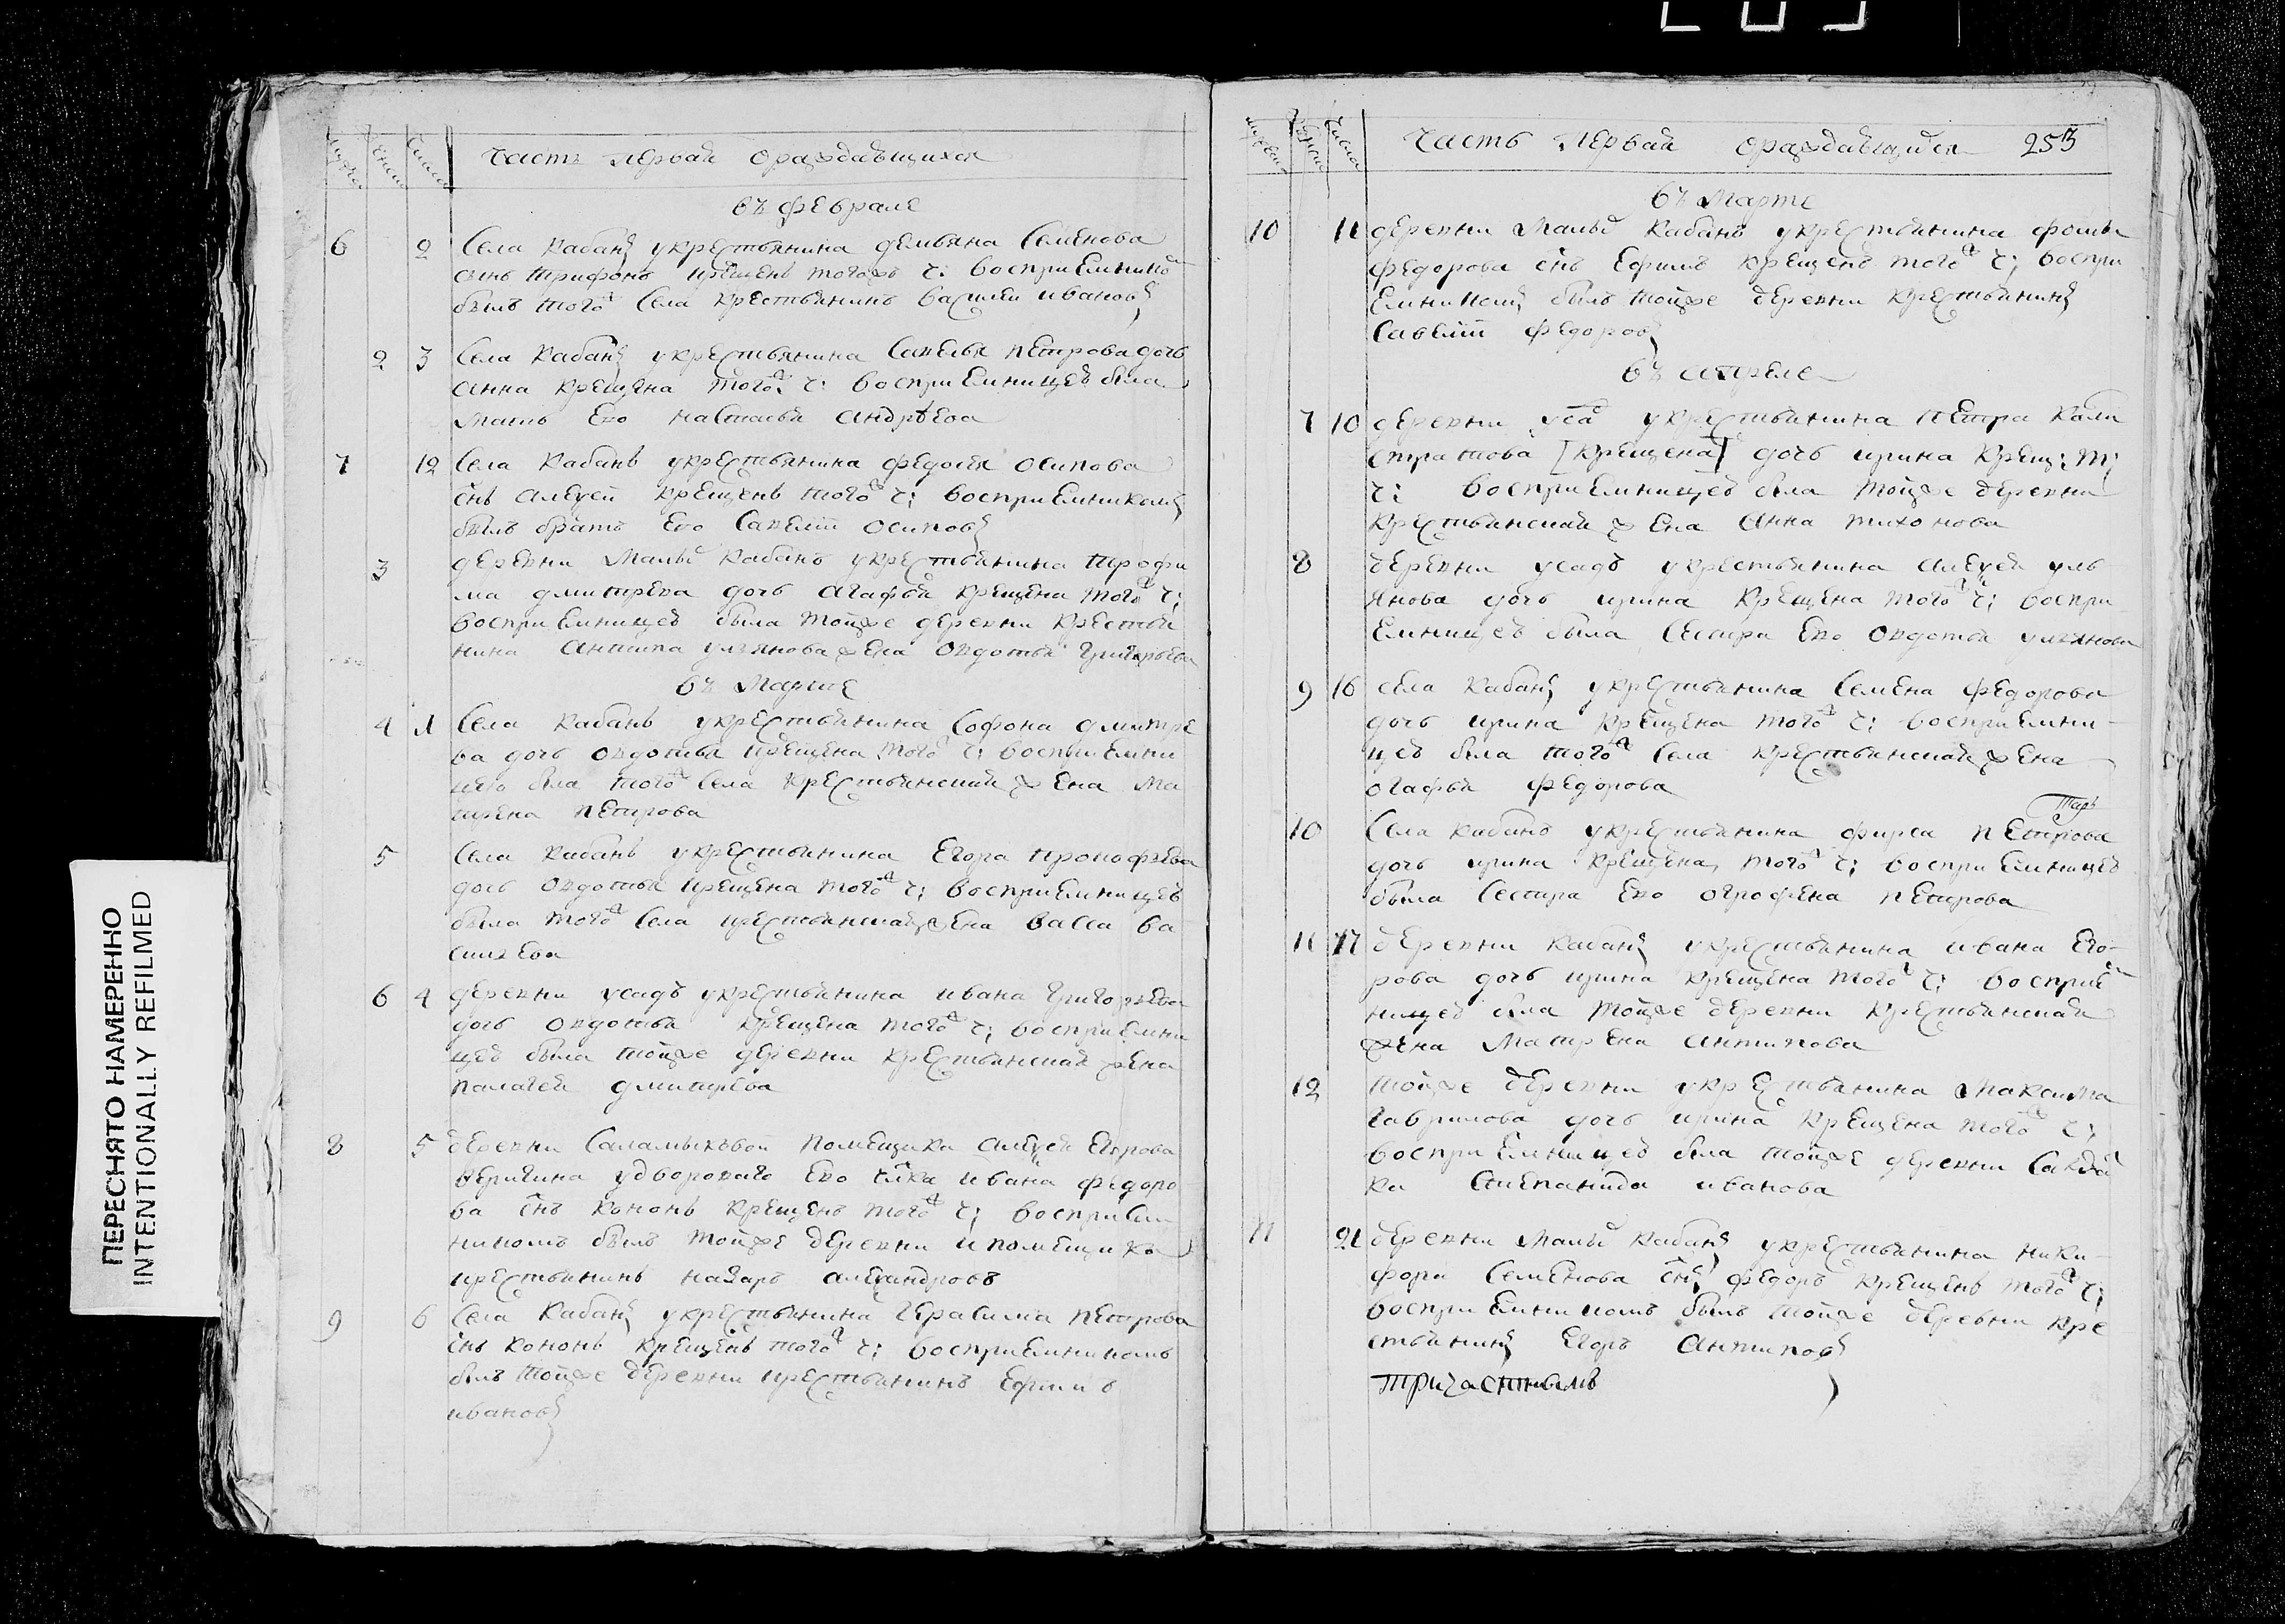 ПЕРЕСНЯТО НАМЕРЕННО
INTENTIONALLY REFILMED
Часть первая ораждавщихся
въ феврале
6 2 Села Кабанъ у крестьянина демьяна Семенова
сынъ трифонъ крещенъ тогожъ ч: восприемником
былъ того ж Села крестьянинъ василеи ивановъ
2 3 Села Кабанъ у крестьянина Савелья петрова дочь
анна крещена того ж ч: восприемницеѣ была
мать Ево настасья андрѣева
7 12 Села Кабанъ у крестьянина федосея осипова
снъ алеѯеи крещенъ того ж ч: восприемникомъ
былъ братъ Ево Савелiи осиповъ
3 деревни малыѣ Кабанъ у крестьянина трофи
ма дмитрева дочь агафья крещена того ж ч:
восприемницеѣ была тойже деревни крестья
нина антипа ульянова жена овдотья григорьева
въ марте
4 1 Села Кабанъ у крестьянина Софона дмитре
ва дочь овдотья крещена того ж ч: восприемни
цею была того ж Села крестьянская жена ма
трена петрова
5 Села Кабанъ у крестьянина Егора прокофьева
дочь овдотья крещена того ж ч: восприемницеѣ
была того ж Села крестьянская жена васса ва
сильева
6 4 деревни усадъ у крестьянина ивана григорьева
дочь овдотья крещена того ж ч: восприемни
цеѣ была тойже деревни крестьянская жена
палагея дмитрева
8 5 деревни Саламыковои помещика алеѯея Егорова
веригина у двороваго Ево члка ивана федоро
ва снъ кононъ крещенъ того ж ч: восприем
никомъ былъ тойже деревни и помещика
крестьянинъ назаръ алеѯандровъ
9 6 Села Кабанъ у крестьянина герасима петрова
снъ кононъ крещенъ того ж ч: восприемникомъ
былъ тойже деревни крестьянинъ Ефимъ
ивановъ
Часть первая ораждавщихся 253
въ марте
10 11 деревни малыѣ Кабанъ у крестьянина фомы
федорова снъ Ефимъ крещенъ того ж ч: воспри
емникомъ былъ тойже деревни крестьянинъ
Савелiи федоровъ
въ апреле
7 10 деревни усад у крестьянина петра кали
стратова [крещена] дочь ирина крещ: т:
ч: восприемницеѣ была тойже деревни
крестьянская жена анна тихонова
8 деревни усадъ у крестьянина алеѯея уль
янова дочь ирина крещена того ж ч: воспри
емницеѣ была Сестра Ево овдотья ульянова
9 16 села Кабанъ у крестьянина Семена федорова
дочь ирина крещена того ж ч: восприемни-
цеѣ была того ж Села крестьянская жена
огафья федорова
10 Села Кабанъ у крестьянина фирса петрова
дочь ирина крещена того ж ч: восприемницеѣ
была Сестра Ево огрофена петрова
11 17 деревни Кабанъ у крестьянина ивана Его-
рова дочь ирина крещена того ж ч: восприем
ницеѣ была тойже деревни крестьянская
жена матрена антипова
12 тойже деревни у крестьянина максима
гаврилова дочь ирина крещена того ж ч:
восприемницеѣ была тойже деревни Салдат
ка Степанида иванова
11 21 деревни малыѣ Кабанъ у крестьянина ники-
фора Семенова снъ федоръ крещенъ того ж ч:
восприемникомъ былъ тойже деревни кре
стьянинъ Егоръ антиповъ